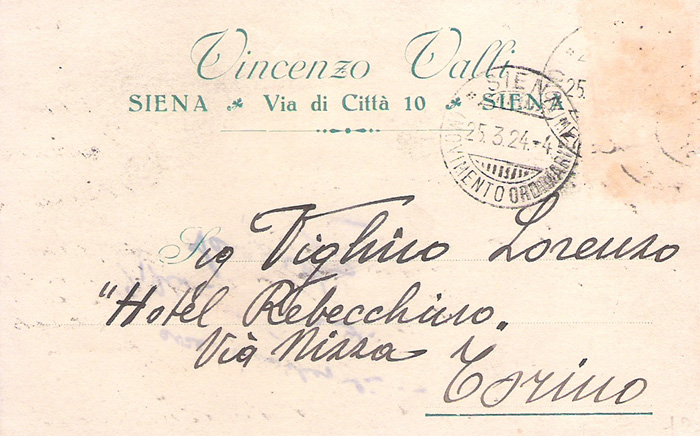 Vincenzo Valli
SIENA Via di Città 10 SIENA
SIENA
25.3.24.-4
MOVIMENTO ORDINARIE
25.
Sig Vighino Lorenzo
"Hotel Rebecchino.
Via Nizza
Torino